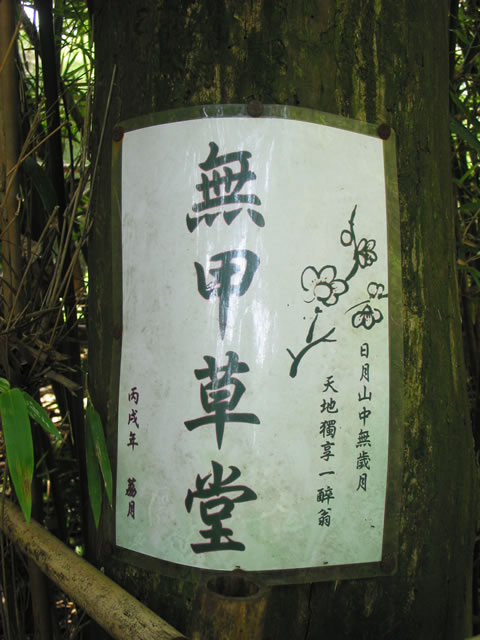 日月山中無歲月
天地獨享一醉翁
無甲草堂
丙戌年 荔月